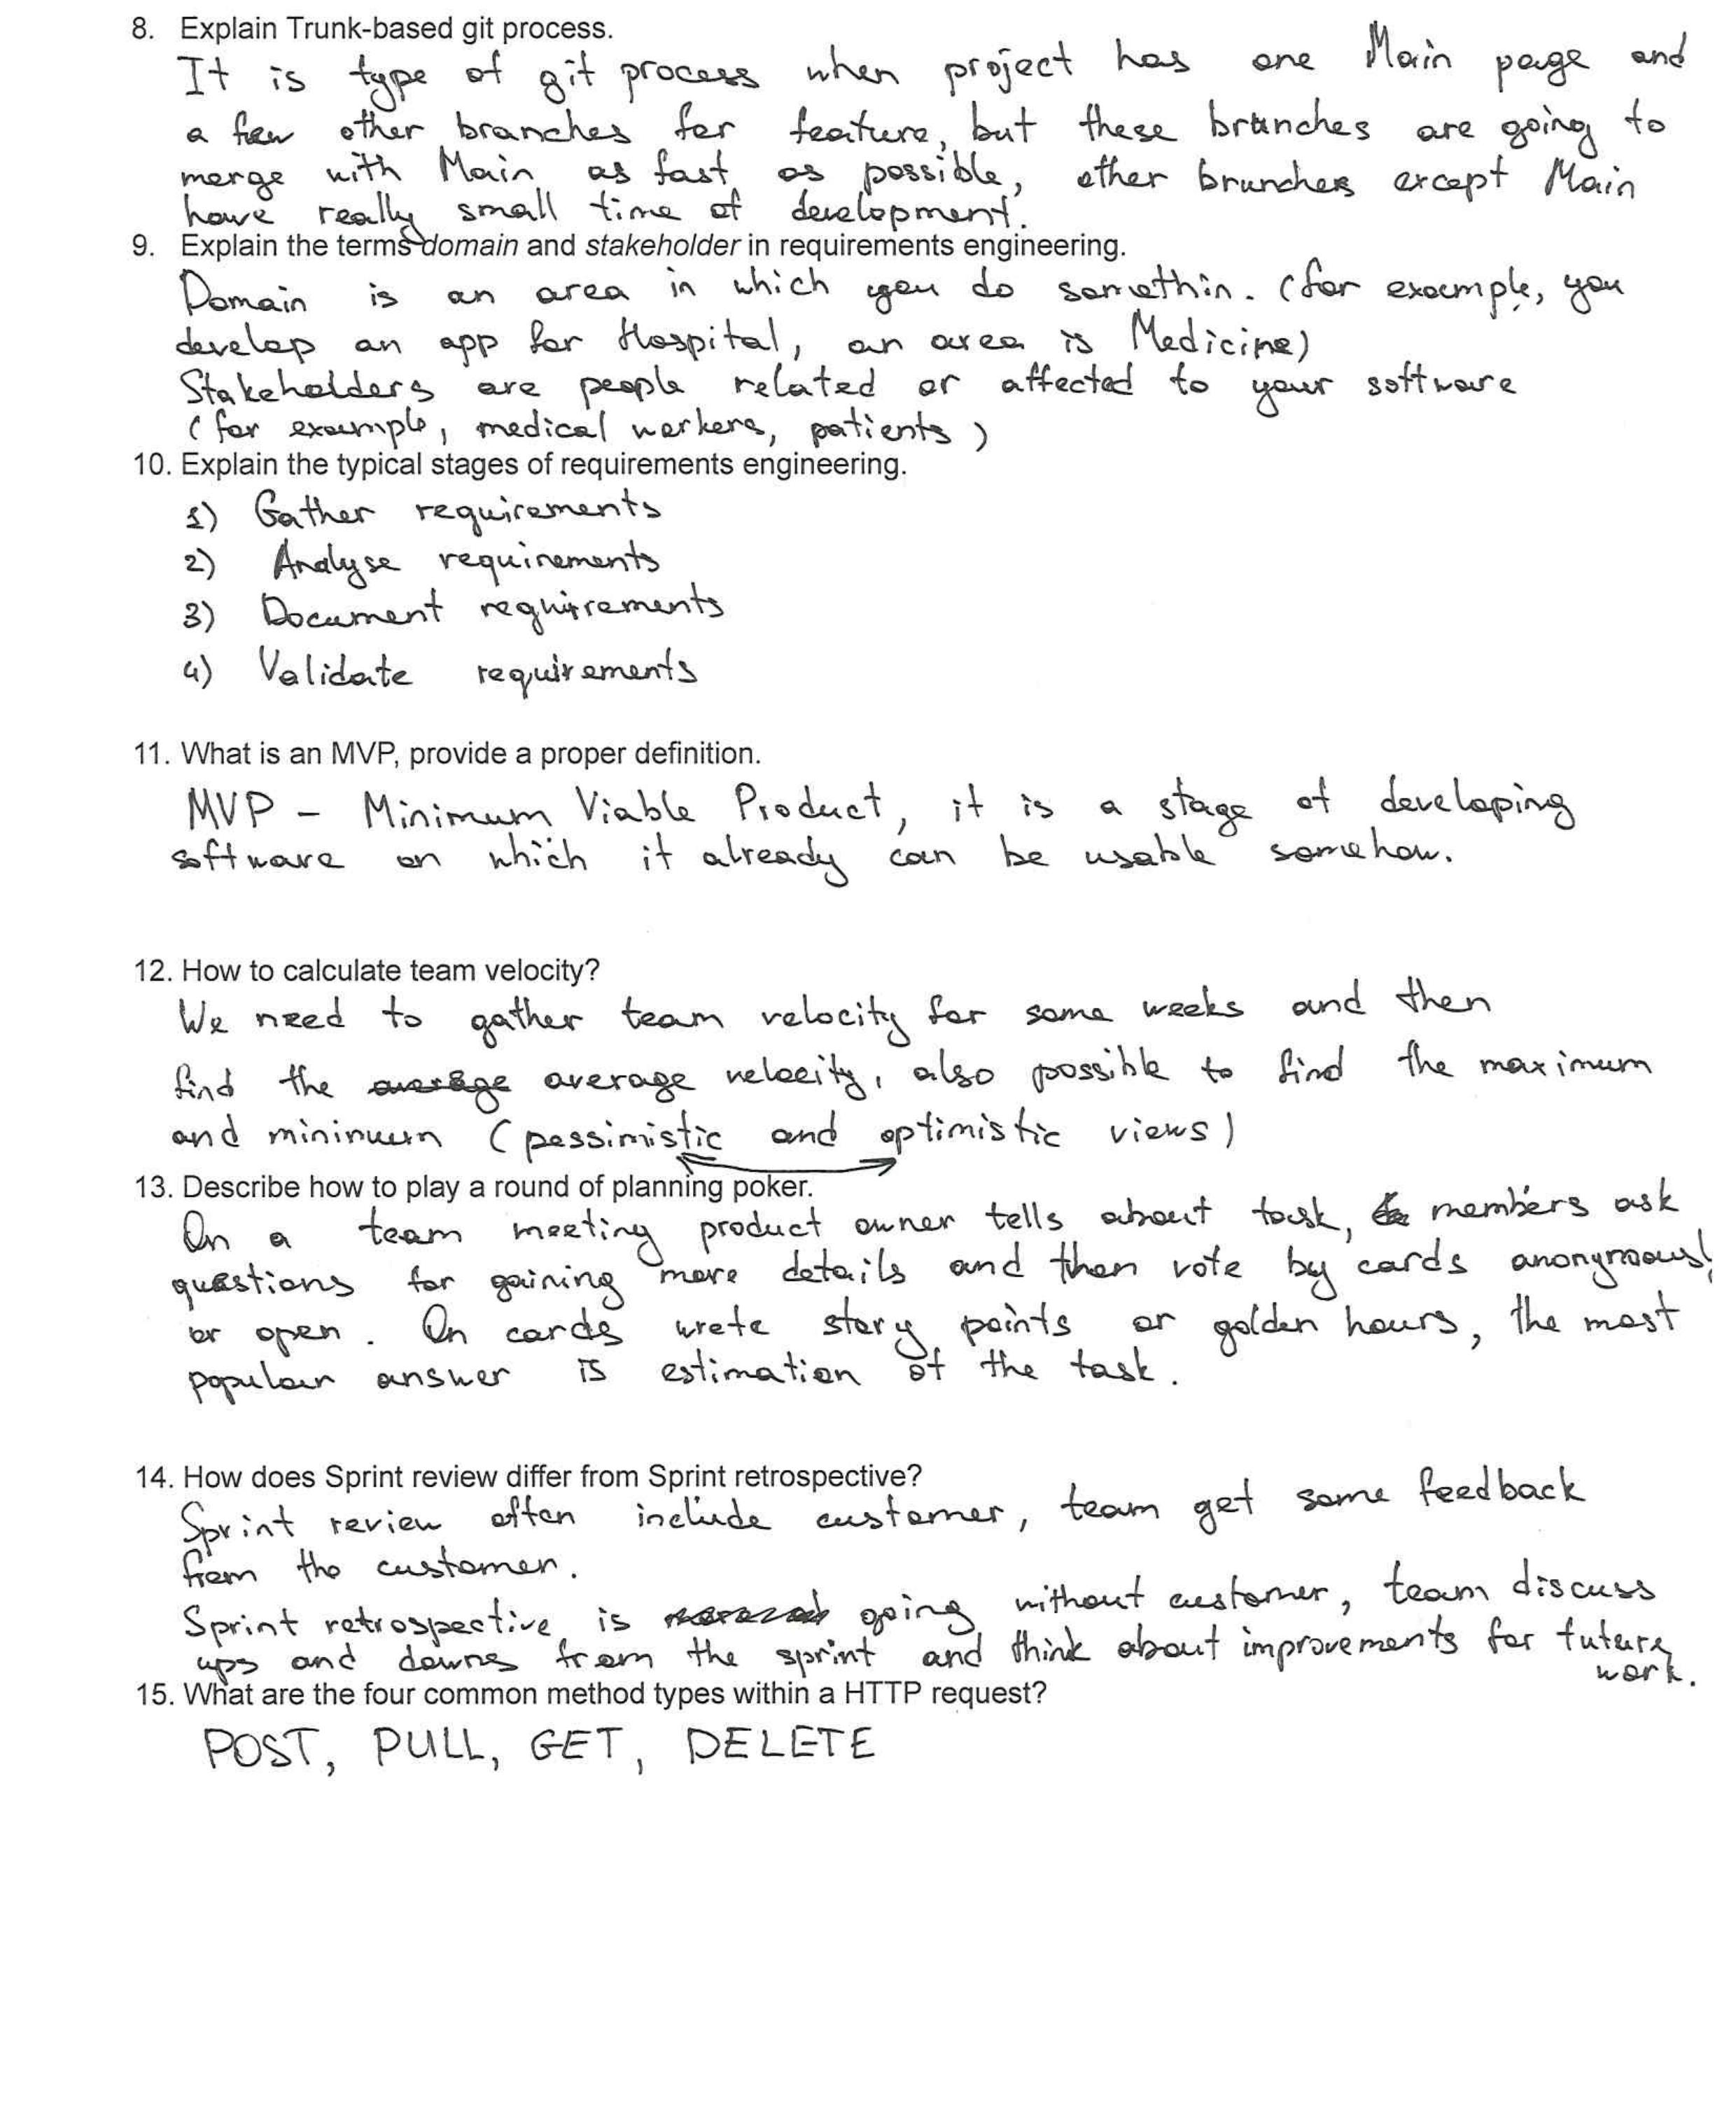 8. Explain Trunk-based git process.
It is type of git process when project has one Main page and
a few other branches for feature, but these branches are going to
merge with Main as fast as possible, other brunches except Main
have really small time of development.
9. Explain the terms domain and stakeholder in requirements engineering.
Domain is an area in which you do somethin. (for example, you
develop an app for Hospital, an area is Medicine)
Stakeholders are people related or affected to your software
(for example, medical workers, patients)
10. Explain the typical stages of requirements engineering.
1) Gather requirements
2) Analyse requirements
3) Document requirements
4) Validate requirements
11. What is an MVP, provide a proper definition.
MVP - Minimum Viable Product, it is a stage of developing
software on which it already can be usable somehow.
12. How to calculate team velocity?
We need to gather team velocity for some weeks and then
find the average average velocity, also possible to find the maximum
and minimum (pessimistic and optimistic views)
13. Describe how to play a round of planning poker.
On a team meeting product owner tells about task, members ask
questions for gaining more details and then vote by cards anonymously
or open. On cards wrote story points or golden hours, the most
popular answer is estimation of the task.
14. How does Sprint review differ from Sprint retrospective?
Sprint review often include customer, team get some feedback
from the customer.
Sprint retrospective is going without customer, team discuss
ups and downs from the sprint and think about improvements for future
work.
15. What are the four common method types within a HTTP request?
POST, PULL, GET, DELETE